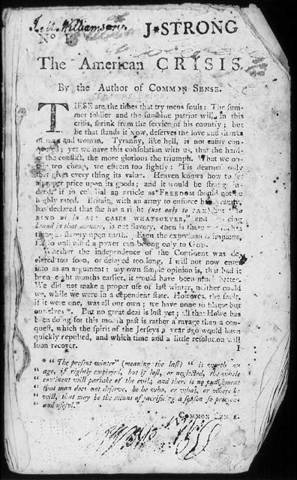 Williamson J. STRONG
The American CRISIS.
By the Author of COMMON SENSE.
THESE are the times that try mens souls: The sum-
mer soldier and the sunshine patriot will, in this
crisis, shrink from the service of his country; but
he that stands it now, deserves the love and thanks
of man and woman. Tyranny, like hell, is not easily con-
quered; yet we have this consolation with us, that the hard-
the conflict, the more glorious the triumph. What we ob-
too cheap, we esteem too lightly: 'Tis dearness only
that gives every thing its value. Heaven knows how to
proper price upon its goods; and it would be strange
if so celestial an article as FREEDOM should not
highly rated. Britain, with an army to enforce her
has declared that she has a right (not only to TAX) but "to
BIND us in ALL CASES WHATSOEVER," and if being
bound in that manner, is not slavery, then is there
slavery upon earth. Even the expression is impious,
for so unlimited a power can belong only to GOD.
Whether the independence of the Continent was de-
clared too soon, or delayed too long, I will not now enter
into as an argument; my own simple opinion is, that had it
been eight months earlier, it would have been much better.
We did not make a proper use of last winter, neither could
we, while we were in a dependent state. However, the fault,
if it were one, was all our own; we have none to blame but
ourselves*. But no great deal is lost yet; all that Howe has
been doing for this month past is rather a ravage than a con-
quest, which the spirit of the Jerseys a year ago would have
quickly repulsed, and which time and a little resolution will
soon recover.
* "The present winter" (meaning the last) "is worth an
age, if rightly employed, but if lost, or neglected, the whole
continent will partake of the evil; and there is no punishment
that man does not deserve, be he who, or what, or where he
will, that may be the means of sacrificing a season so precious
and useful."
COMMON SENSE.